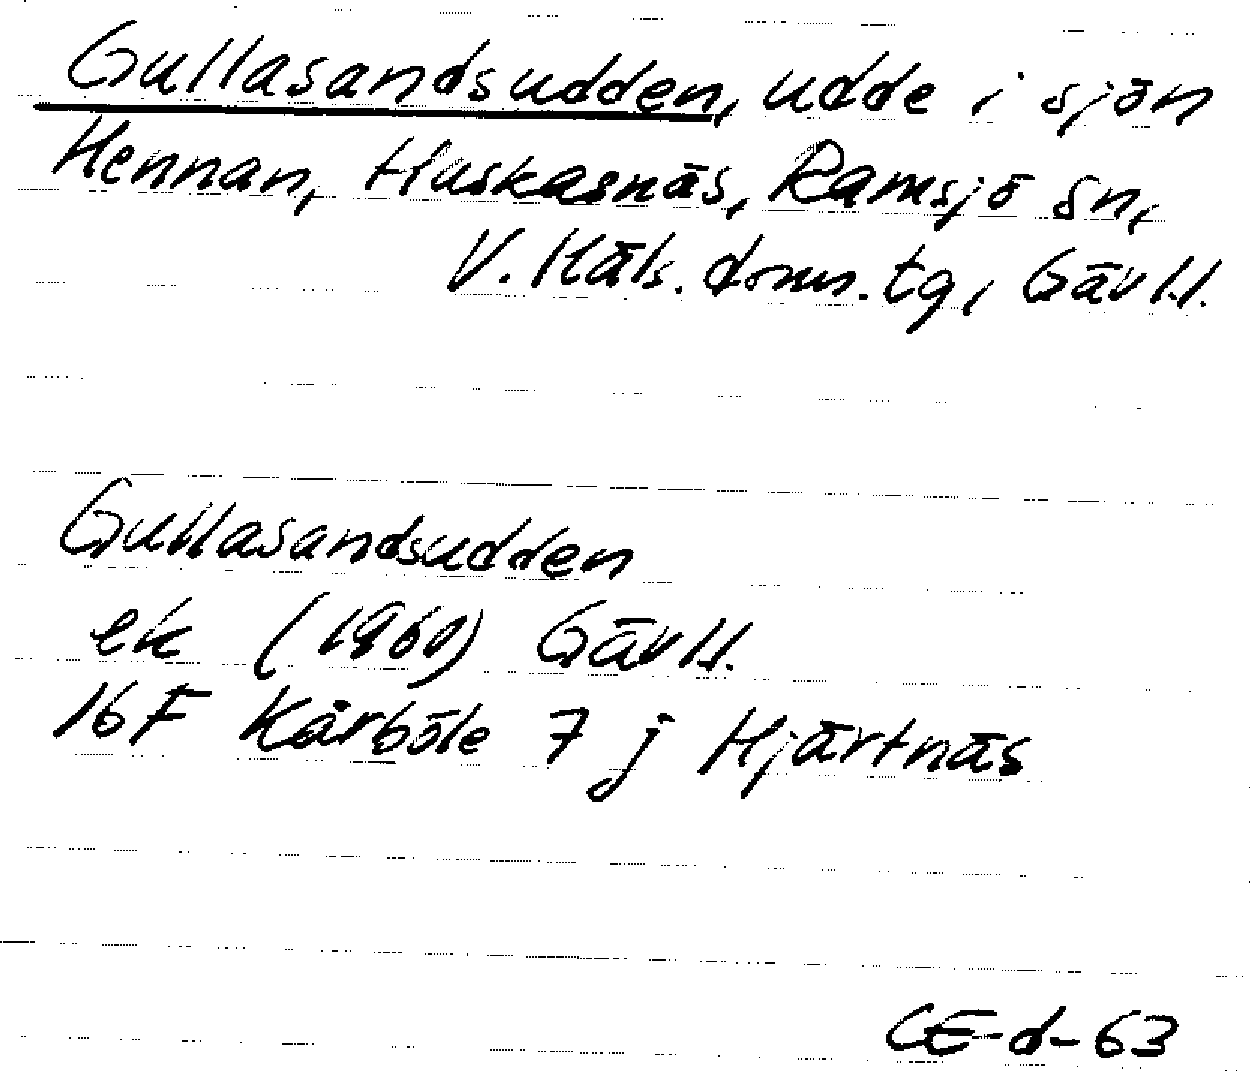 Gullasandsudden, udde i sjön
Hennan, Huskasnäs, Ramsjö sn,
V. Häls. doms. tg, Gävl.l.
Gullasandsudden
ek (1960) Gävl.l.
16F Kårböle 7 j Hjärtnäs
CE-d-63